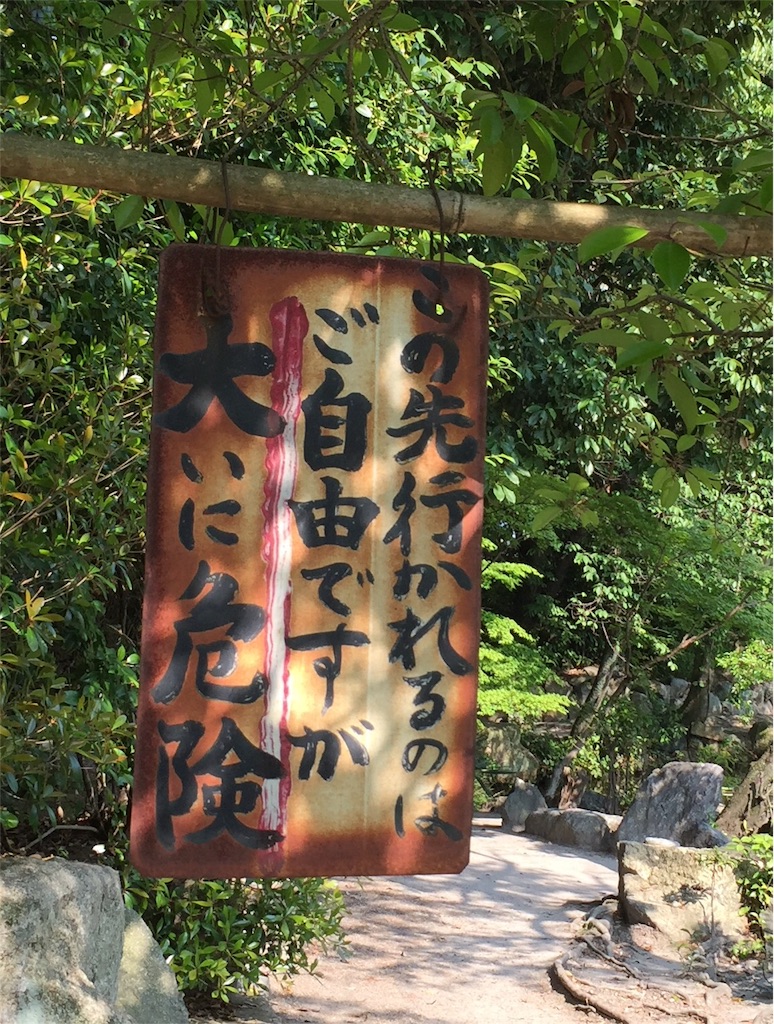 この先行かれるのは
ご自由ですが
大いに危険